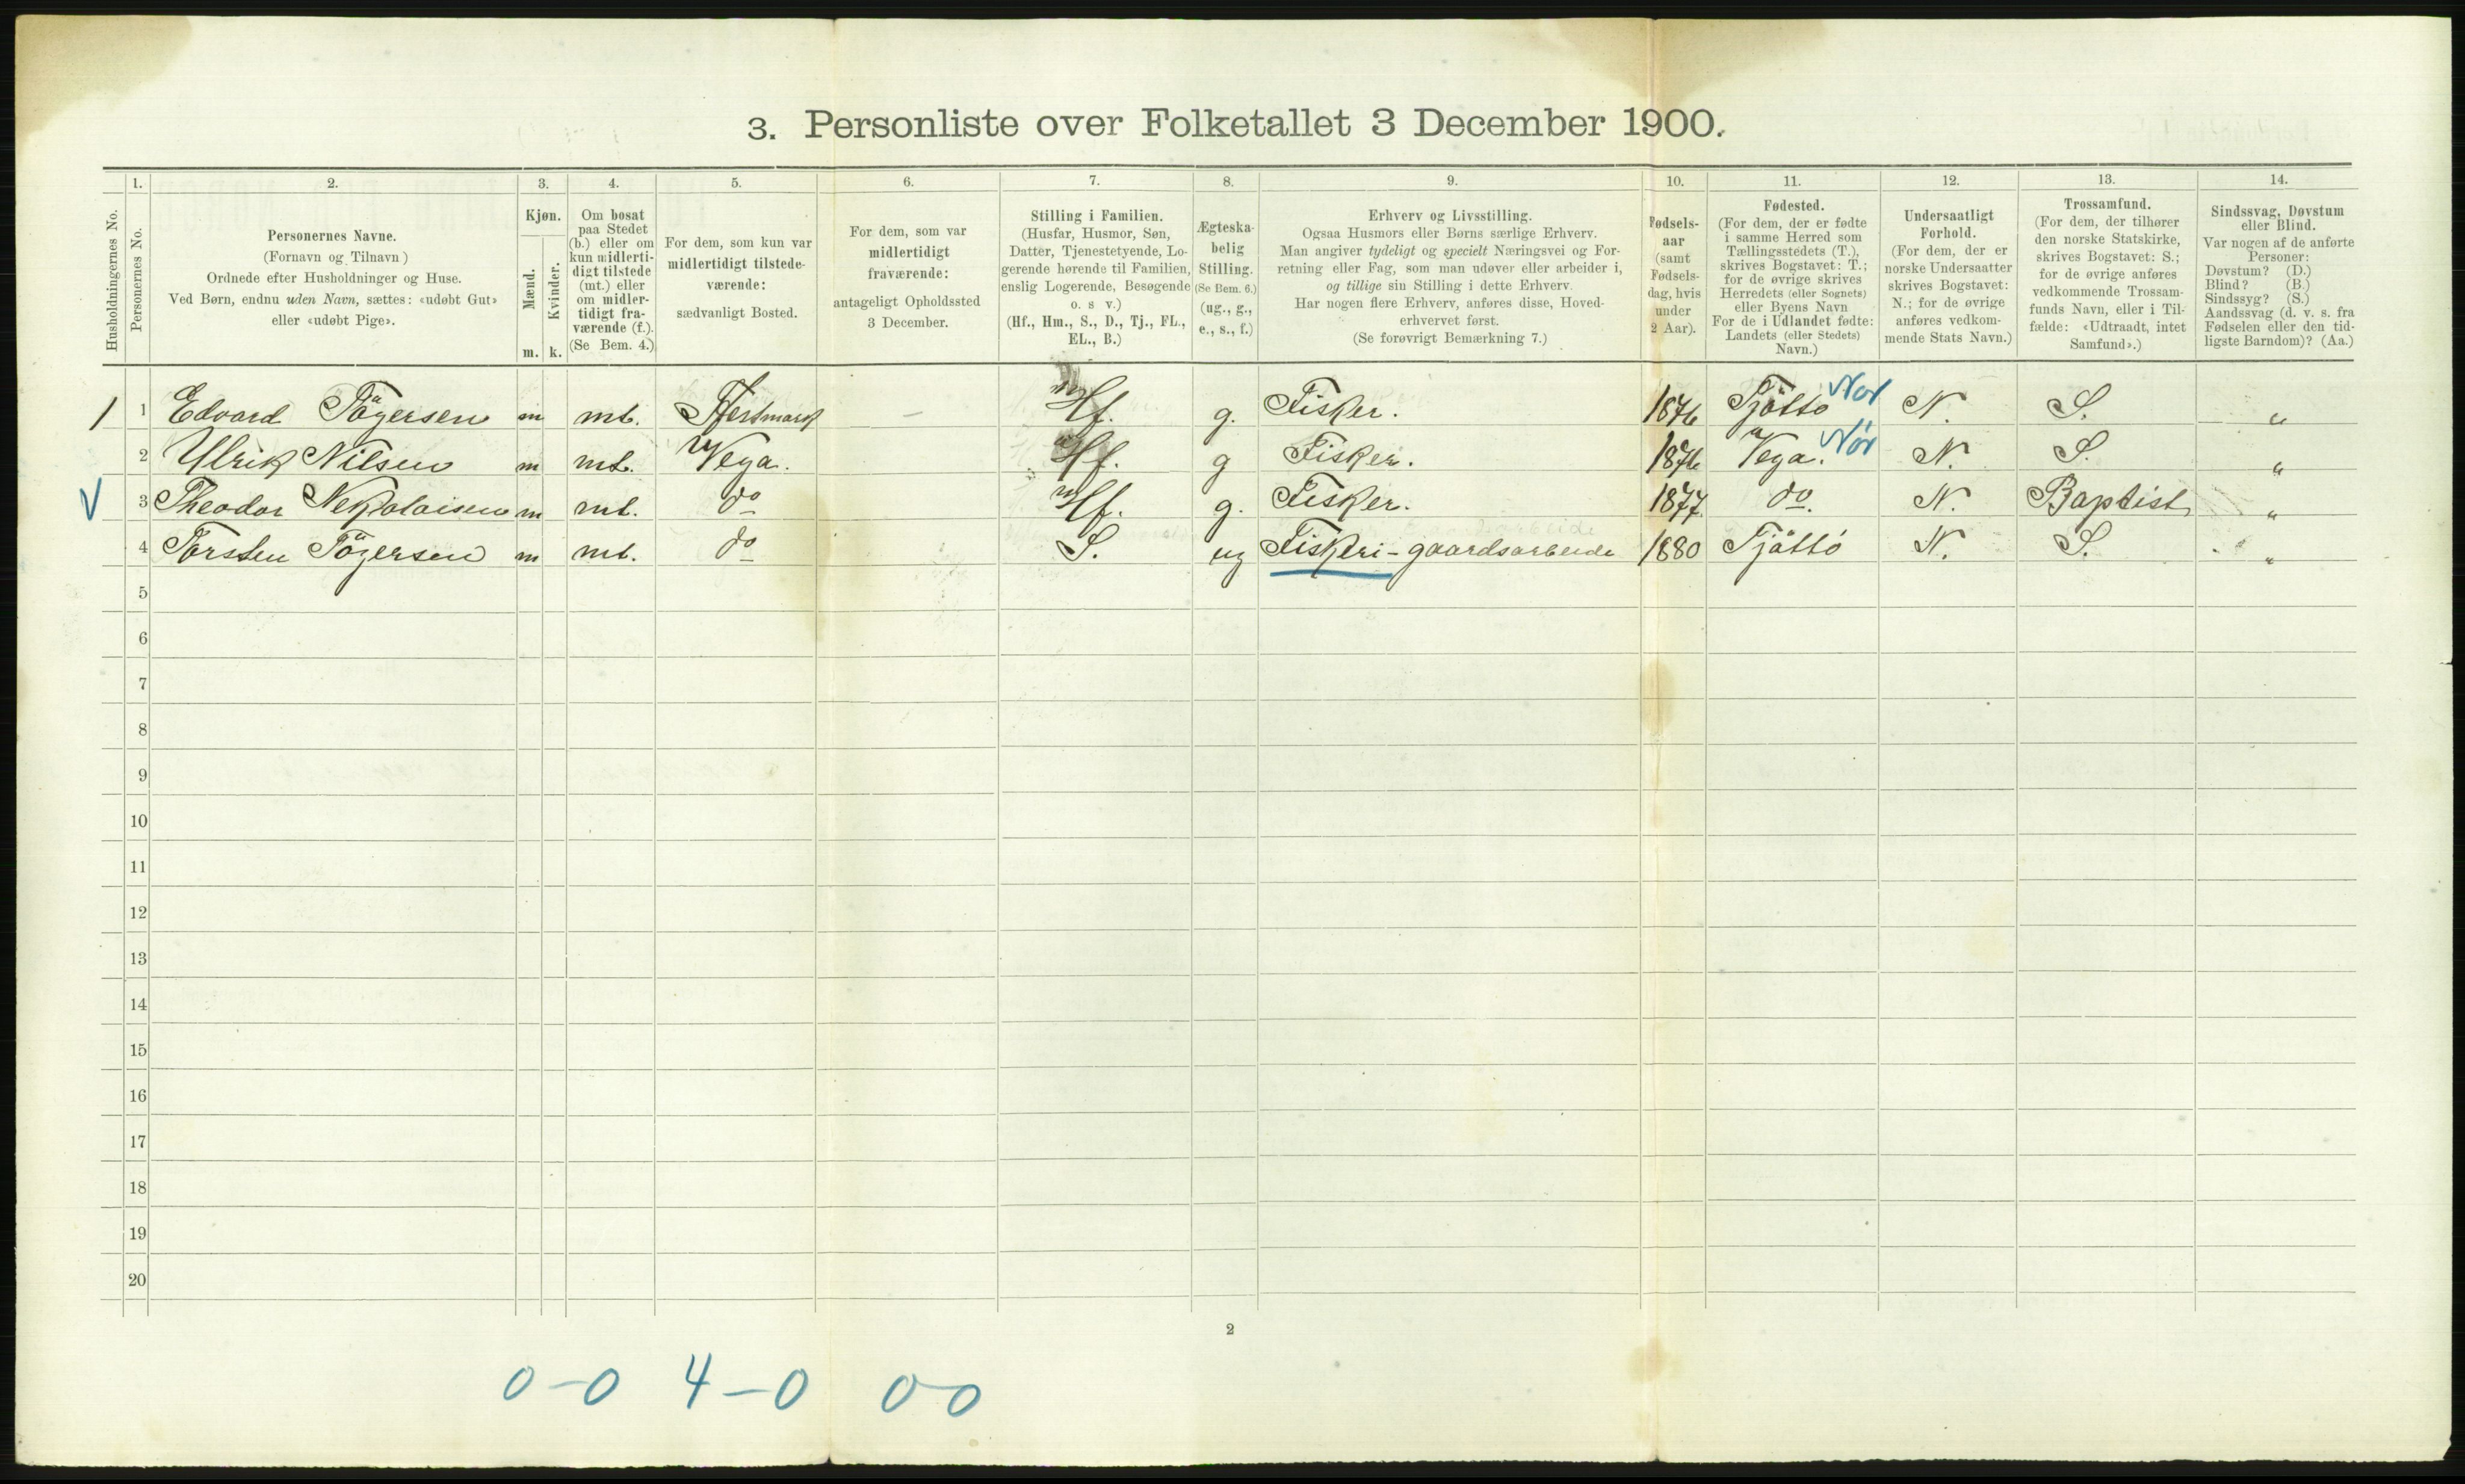 3. Personliste over Folketallet 3 December 1900.
1. 2. 3. 4. 5. 6. 7. 8. 9. 10. 11. 12. 13. 14.
Husholdningernes No.
Personernes No.
Personernes Navne.
(Fornavn og Tilnavn)
Ordnede efter Husholdninger og Huse.
Ved Børn, endnu uden Navn, sættes: «udøbt Gut»
eller «udøbt Pige».
Kjøn.
Mænd.
Kvinder.
m. k.
Om bosat
paa Stedet
(b.) eller om
kun midlerti-
digt tilstede
(mt.) eller
om midler-
tidigt fra-
værende (f.).
(Se Bem. 4.)
For dem, som kun var
midlertidigt tilstede-
værende:
sædvanligt Bosted.
For dem, som var
midlertidigt
fraværende:
antageligt Opholdssted
3 December.
Stilling i Familien.
(Husfar, Husmor, Søn,
Datter, Tjenestetyende, Lo-
gerende hørende til Familien,
enslig Logerende, Besøgende
o. s v.)
(Hf., Hm., S., D., Tj., FL.,
EL., B.)
Ægteska-
belig
Stilling.
(Se Bem. 6.)
(ug., g.,
e., s., f.)
Erhverv og Livsstilling.
Ogsaa Husmors eller Børns særlige Erhverv.
Man angiver tydeligt og specielt Næringsvei og For-
retning eller Fag, som man udøver eller arbeider i,
og tillige sin Stilling i dette Erhverv.
Har nogen flere Erhverv, anføres disse, Hoved-
erhvervet først.
(Se forøvrigt Bemærkning 7.)
Fødsels-
aar
(samt
Fødsels-
dag, hvis
under
2 Aar).
Fødested.
(For dem, der er fødte
i samme Herred som
Tællingsstedets (T.),
skrives Bogstavet: T.;
for de øvrige skrives
Herredets (eller Sognets)
eller Byens Navn
For de i Udlandet fødte:
Landets (eller Stedets)
Navn.)
Undersaatligt
Forhold.
(For dem, der er
norske Undersaatter
skrives Bogstavet:
N.; for de øvrige
anføres vedkom-
mende Stats Navn.)
Trossamfund.
(For dem, der tilhører
den norske Statskirke,
skrives Bogstavet: S.;
for de øvrige anføres
vedkommende Trossam-
funds Navn, eller i Til-
fælde: «Udtraadt, intet
Samfund».)
Sindssvag, Døvstum
eller Blind.
Var nogen af de anførte
Personer:
Døvstum? (D.)
Blind? (B.)
Sindssyg? (S.)
Aandssvag (d. v. s. fra
Fødselen eller den tid-
ligste Barndom)? (Aa.)
1 1 Edvard Tögersen m mt. – Hf. g. Fisker. 1876 Tjöttö Nor N. S. "
2 Ulrik Nilsen m mt. Vega. Hf. g Fisker. 1876 Vega. Nor N. S. "
V 3 Theodor Nekolaisen m mt. do Hf. g. Fisker. 1877. do. N. Baptist "
4 Torsten Tögersen m mt. do S. ug Fiskeri-gaardsarbeide 1880 Tjöttö N. S. "
5
6
7
8
9
10
11
12
13
14
15
16
17
18
19
20
2
0–0 4–0 0 0